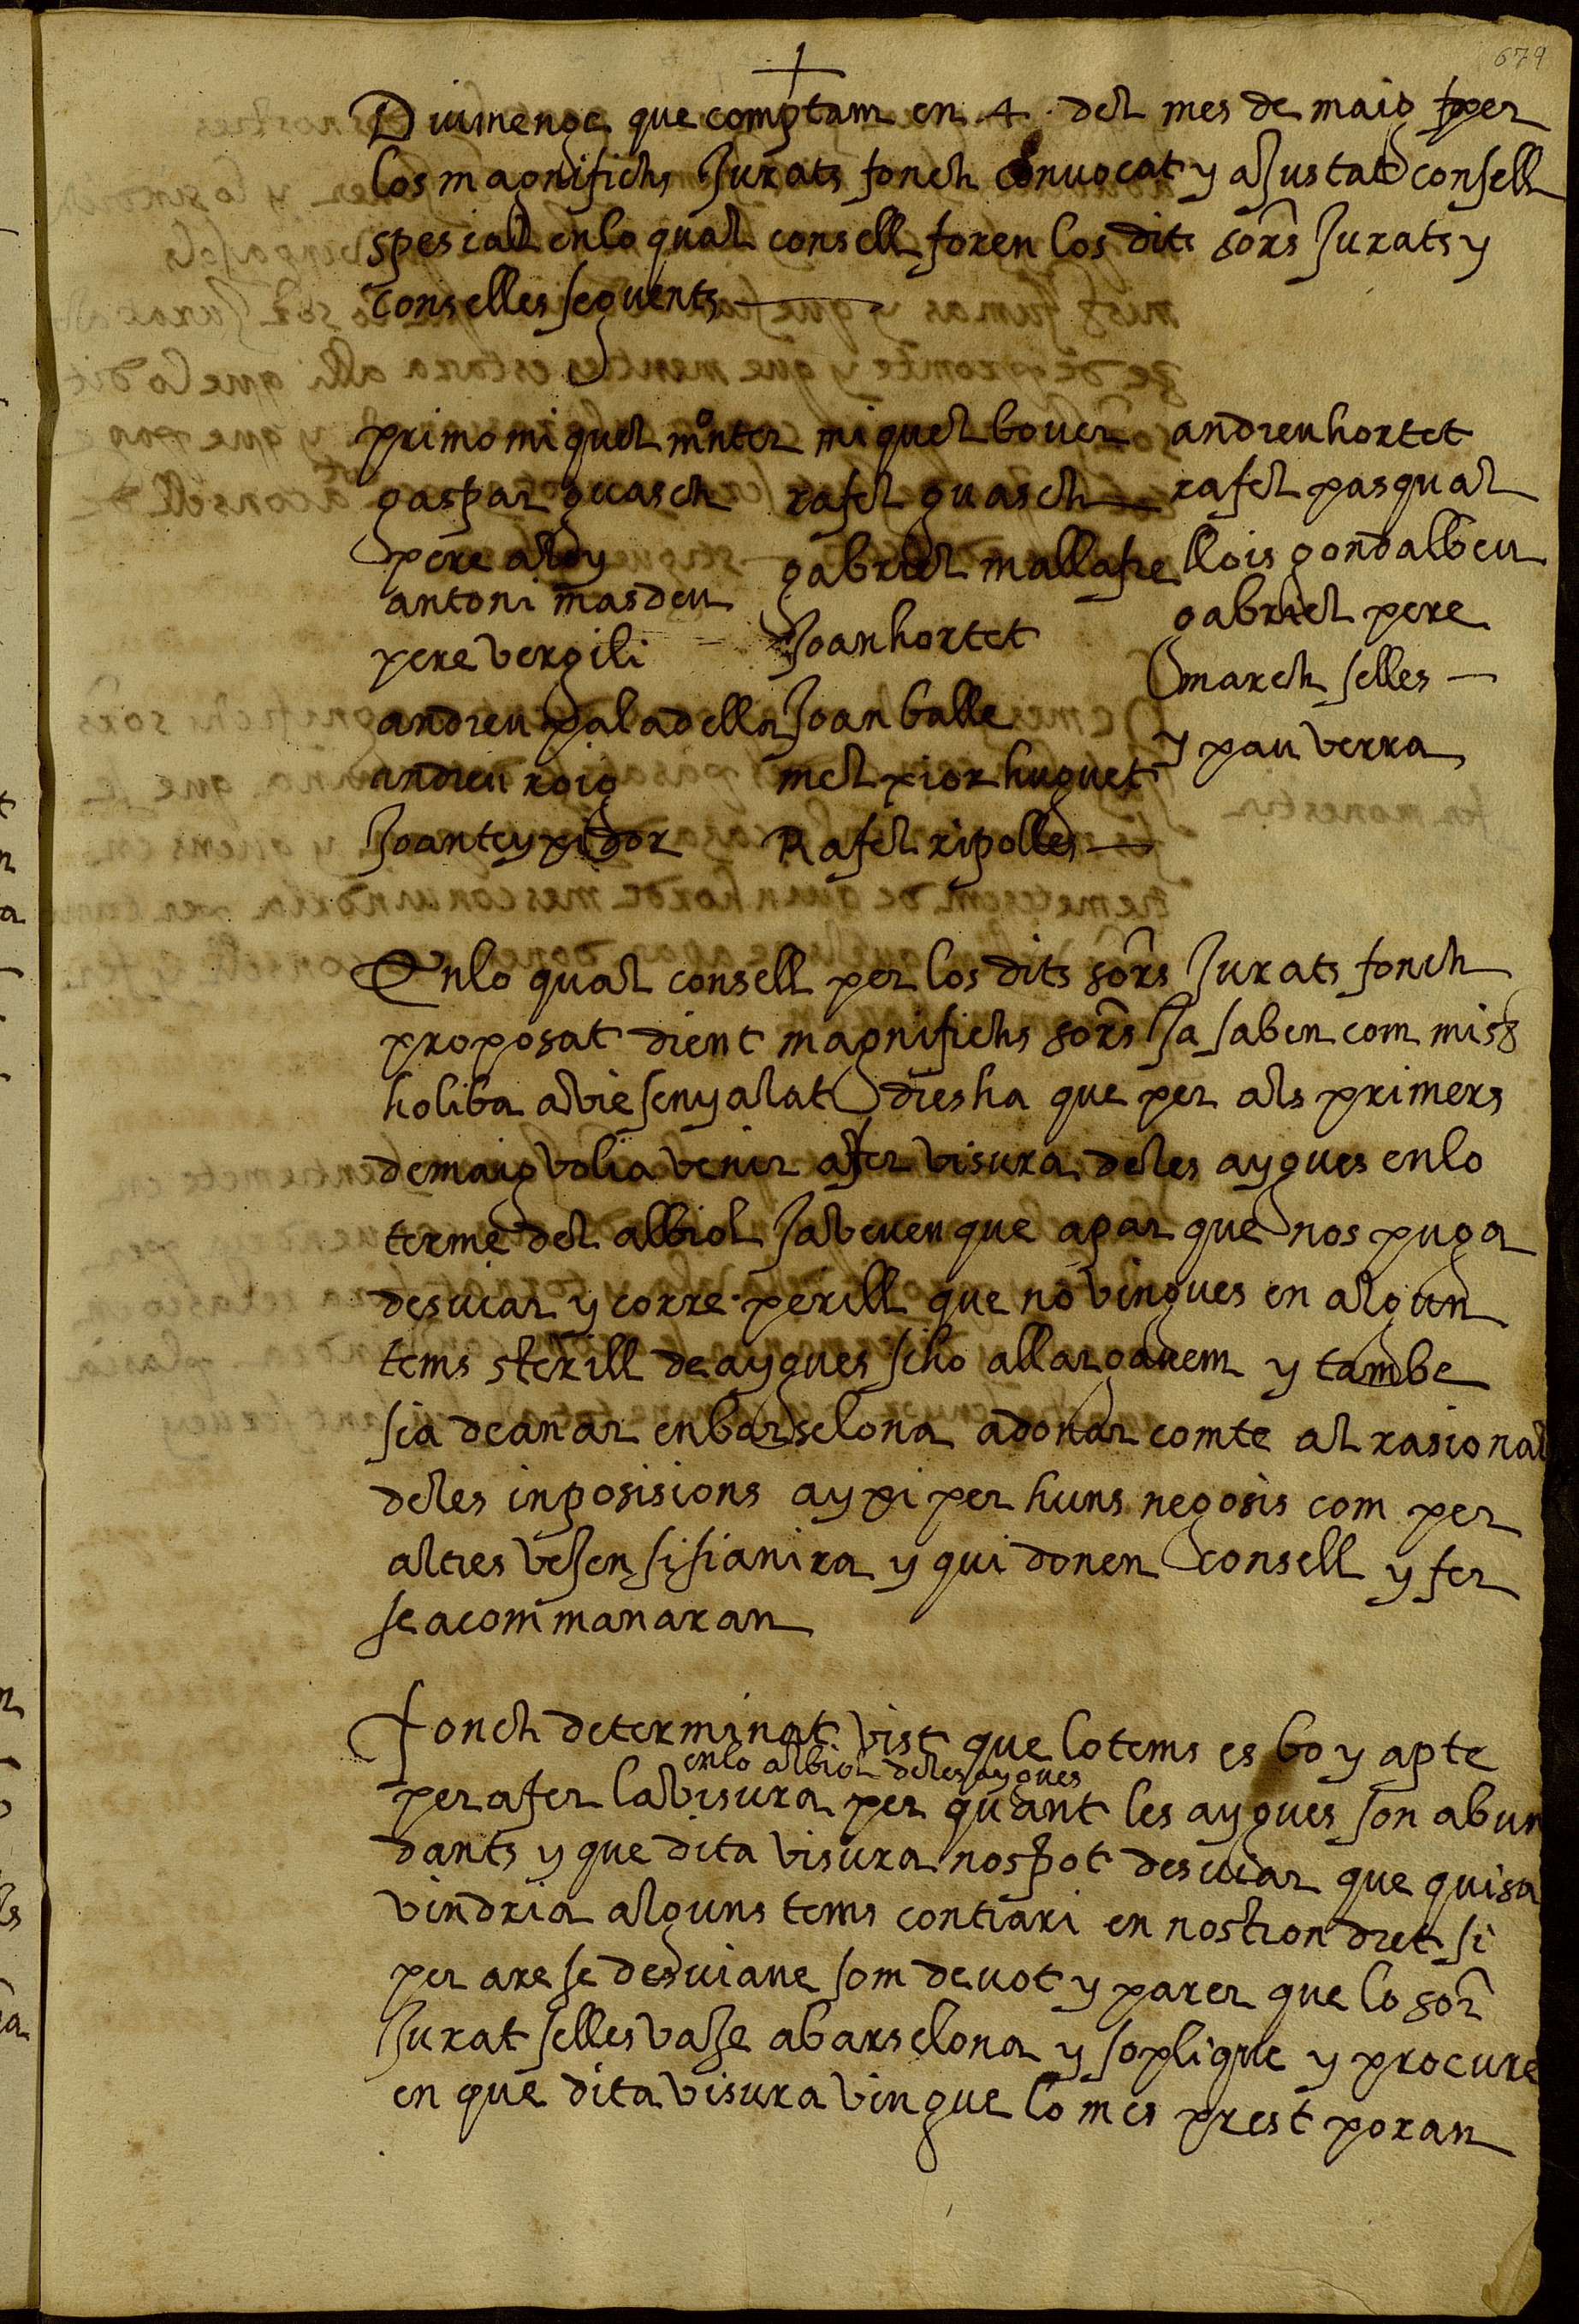 679
Diumenge que comptam en .4. del mes de maig per
los magnifichs Jurats fonch convocat y aJustat consell
spesial enlo qual consell foren los dits sors Jurats y
conselles seguents
primo miquel monter miquel bover andreu hortet
gaspar guasch rafel guasch rafel pasqual
pere aloy gabriel mallafre llois gondalbeu
antoni masdeu gabriel pere
pere vergili Joan hortet
march selles
andreu paladella Joan balle
y pau verra
andreu roig melxior huguet
Joan teyxidor Rafel ripolles
Enlo qual consell per los dits sors Jurats fonch
proposat dient magnifichs sors Ja saben com misr
holiba avie senyalat dies ha que per als primers
de maig volia venir afer visura deles aygues enlo
terme del albiol Ja veuen que apar que nos puga
desviar y corre perill que no vingues en algun
tems sterill de aygues siho allargavem y tambe
sia de anar en barselona a donar comte al rasional
deles inposisions ayxi per huns negosis com per
altres veJen si sianira y qui donen consell y fer
se a com manaran
fonch determinat vist que lo tems es bo y apte
enlo albiol deles aygues
per afer la visura per quant les aygues son abun
dants y que dita visura nos pot desviar que quisa
vindria alguns tems contrari en nostron dret si
per are se desviave som de vot y parer que lo sor
Jurat selles vaJe a barselona y soplique y procure
en que dita visura vingue lo mes prest poran